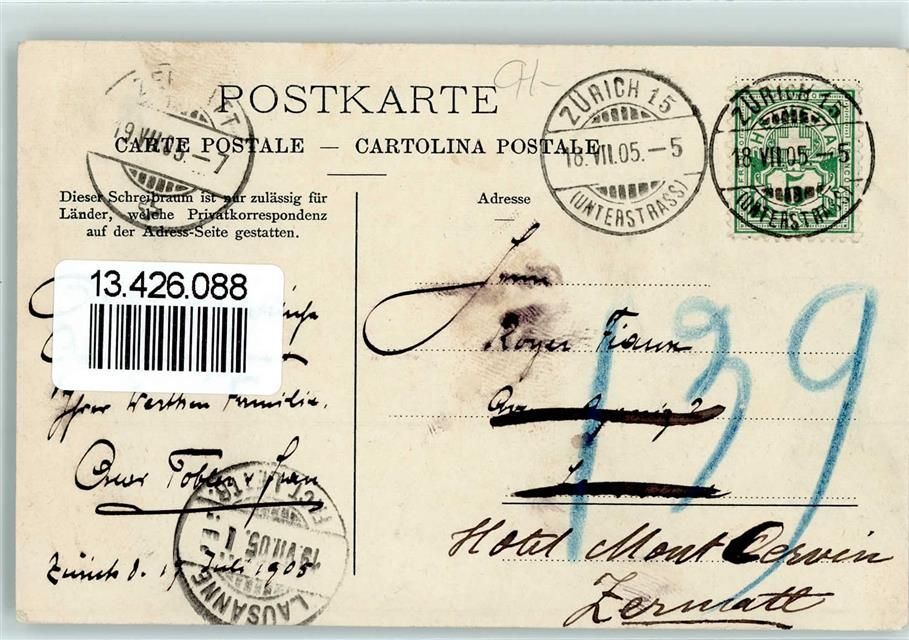 POSTKARTE
CARTE POSTALE — CARTOLINA POSTALE
ZÜRICH 15
18.VII.05.–5
(UNTERSTRASS)
ZÜRICH 15
18.VII.05.–5
(UNTERSTRASS)
ZERMATT
19.VII.05.–7
Dieser Schreibraum ist nur zulässig für
Länder, welche Privatkorrespondenz
auf der Adress-Seite gestatten.
Adresse
13.426.088
Ihrer werthen Familie.
Oscar Tobler & Frau
Zürich d. 17 Juli 1905
LAUSANNE
19.VII.05.
FACT. LETTR.
Herrn
Roger
139
Hotel Mont Cervin
Zermatt